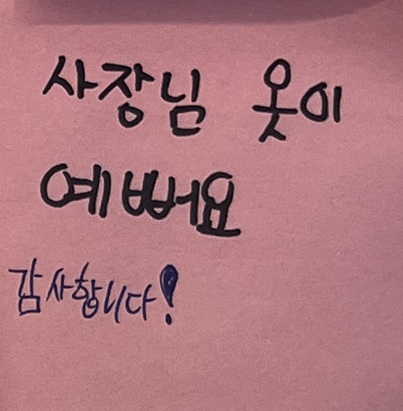 사장님 옷이
예뻐요
감사합니다!